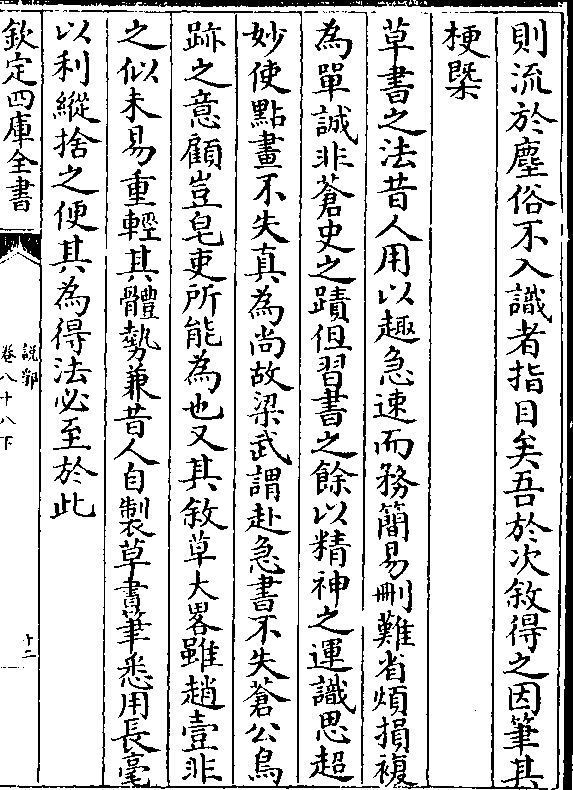 則流於塵俗不入識者指目矣吾於次敘得之因筆其
梗槩
草書之法昔人用以趣急速而務簡易刪難省煩損複
為單誠非蒼史之蹟但習書之餘以精神之運識思超
妙使點畫不失真為尚故梁武謂赴急書不失蒼公鳥
跡之意顧豈皂吏所能為也又其敘草大畧雖趙壹非
之似未易重輕其體勢兼昔人自製草書筆悉用長毫
以利縱捨之便其為得法必至於此
欽定四庫全書
說郛
卷八十八下
十二